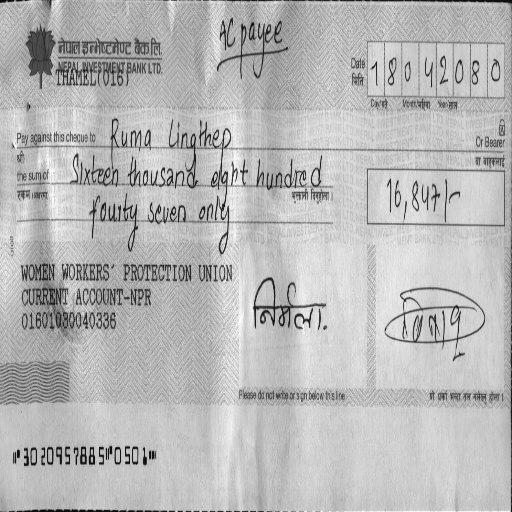 AC payee
नेपाल इन्भेष्टमेण्ट बैंक लि.
NEPAL INVESTMENT BANK LTD.
THAMEL(016)
Date
मिति
1 8 0 4 2 0 8 0
Day/गते Month/महिना Year/साल
Pay against this cheque to Ruma Lingthep
Or Bearer
श्री
वा वाहकलाई
the sum of Sixteen thousand eight hundred
16,847/-
fourty seven only
WOMEN WORKERS' PROTECTION UNION
CURRENT ACCOUNT-NPR
01601030040336
निर्मला.
Please do not write or sign below this line
⑈3020957885⑈0501⑈